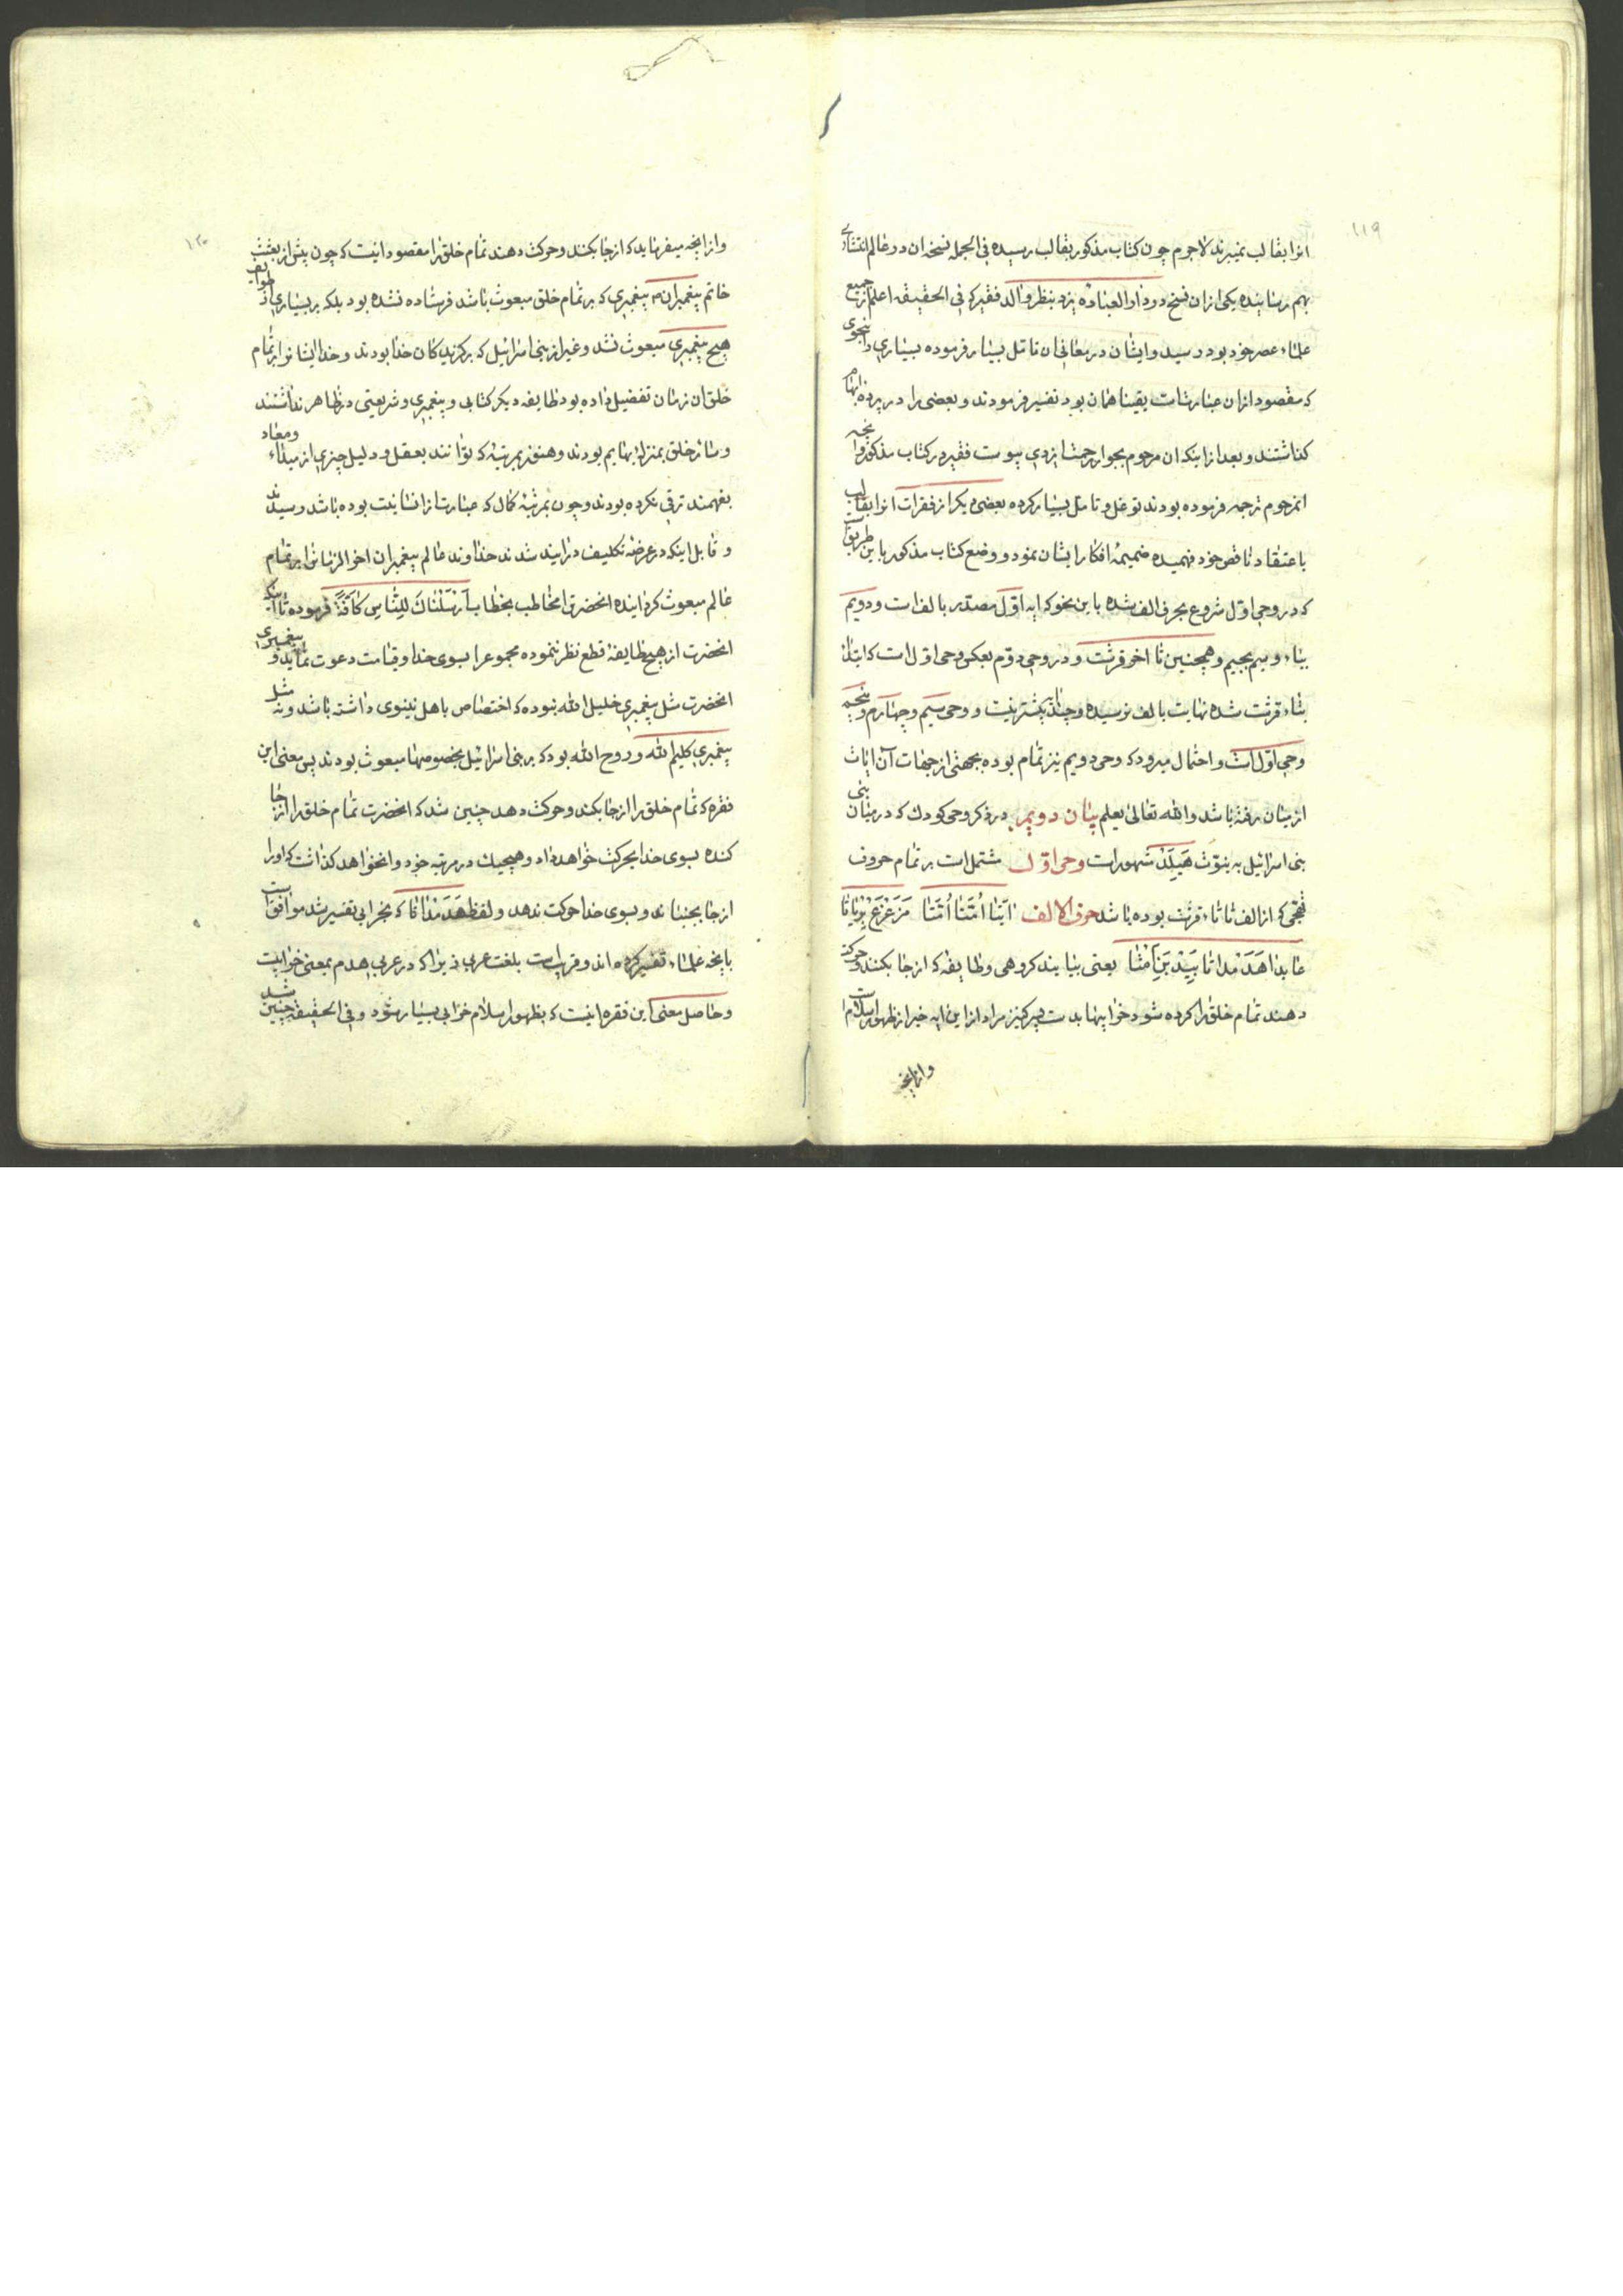 ١١٩
انرا بقالب نمیبرند لاجرم چون کتاب مذکور بقالب رسیده فی الجمله نسخه ان در عالم انتشاری
بهم رسانیده یکی از ان نسخ در دار العباده یزد بنظر والد فقیر که فی الحقیقه اعلم از جمیع
علماء عصر خود بود رسید و ایشان در معانی ان تامل بسیار فرموده بسیاری را بنحوی
که مقصود از ان عبارتست یقینا همان بود تفسیر فرمودند و بعضی را در پرده ابهام
گذاشتند و بعد از اینکه ان مرحوم بجوار رحمت ایزدی پیوست فقیر در کتاب مذکور و انچه
انمرحوم ترجمه فرموده بودند توغل و تامل بسیار کرده بعضی دیگر از فقرات انرا بقالب
باعتقاد ناقص خود فهمیده ضمیمه افکار ایشان نمود و وضع کتاب مذکور باین طریق است
که در وحی اول شروع بحرف الف شده باین نحو که ایه اول مصدر بالف است و دویم
بباء و سیم بجیم و همچنین تا اخر قرشت و در وحی دوم بعکس وحی اول است که ابتدا
بتاء قرشت شده نهایت بالف نرسیده و چند ایه بیشتر نیست و وحی سیم و چهارم و پنجم
وحی اول است و احتمال میرود که وحی دویم نیز تمام بوده بجهتی از جهات آن ایات
از میان رفته باشد والله تعالی یعلم بیان دویم در ذکر وحی کودک که در میان بنی
بنی اسرائیل به نبوئت هیلد مشهور است وحی اول مشتمل است بر تمام حروف
تهجی که از الف تا تاء قرشت بوده باشد حرف الالف اتیا امتا امتا مزعزع بریاتا
عابدا هدمداتا بید بن امتا یعنی بیایند گروهی و طایفه که از جا بکنند و حرکت
دهند تمام خلق را کرده شود خرابیها بدست پسر کنیز مراد از این ایه خبر از ظهور اسلام است
وازانچه
١٢٠
وازانچه میفرماید که از جا بکند و حرکت دهند تمام خلق را مقصود اینست که چون پیش از بعثت
خاتم پیغمبران پیغمبری که بر تمام خلق مبعوث باشد فرستاده نشده بود بلکه بر بسیاری از طوایف
هیچ پیغمبری مبعوث نشد و غیر از بنی اسرائیل که برگزیدکان خدا بودند و خدا ایشانرا بر تمام
خلق ان زمان تفضیل داده بود طایفه دیگر کتابی و پیغمبری و شریعتی در ظاهر نداشتند
و سائر خلق بمنزله بهایم بودند و هنوز بمرتبه که توانند بعقل و دلیل چیزی از مبداء و معاد
بفهمند ترقی نکرده بودند و چون بمرتبه کمال که عبارت از انسانیت بوده باشد رسیدند
و قابل اینکه در عرضه تکلیف درایند شدند خداوند عالم پیغمبران اخر الزمانرا بر تمام
عالم مبعوث گردانیده انحضرترا مخاطب بخطاب ارسلناك للناس كافة فرموده تا اینکه
انحضرت از هیچ طایفه قطع نظر ننموده مجموعرا بسوی خدا و قیامت دعوت نماید و پیغمبری
انحضرت مثل پیغمبری خلیل الله نبوده که اختصاص باهل نینوی داشته باشد و نه مثل
پیغمبری کلیم الله و روح الله بود که بر بنی اسرائیل بخصوصها مبعوث بودند پس معنی این
فقره که تمام خلق را از جا بکند و حرکت دهد چنین شد که انحضرت تمام خلق را از جا
کنده بسوی خدا بحرکت خواهد داد و هیچیک در مرتبه خود وانخواهد گذاشت که او را
از جا بجنباند و بسوی خدا حرکت ندهد و لفظ هدمداتا که بخرابی تفسیر شد موافق است
بانچه علماء تفسیر کرده اند و قریب است بلغت عربی زیرا که در عربی هدم بمعنی خرابیست
و حاصل معنی این فقره اینست که بظهور اسلام خرابی بسیار بشود و فی الحقیقه چنین شد